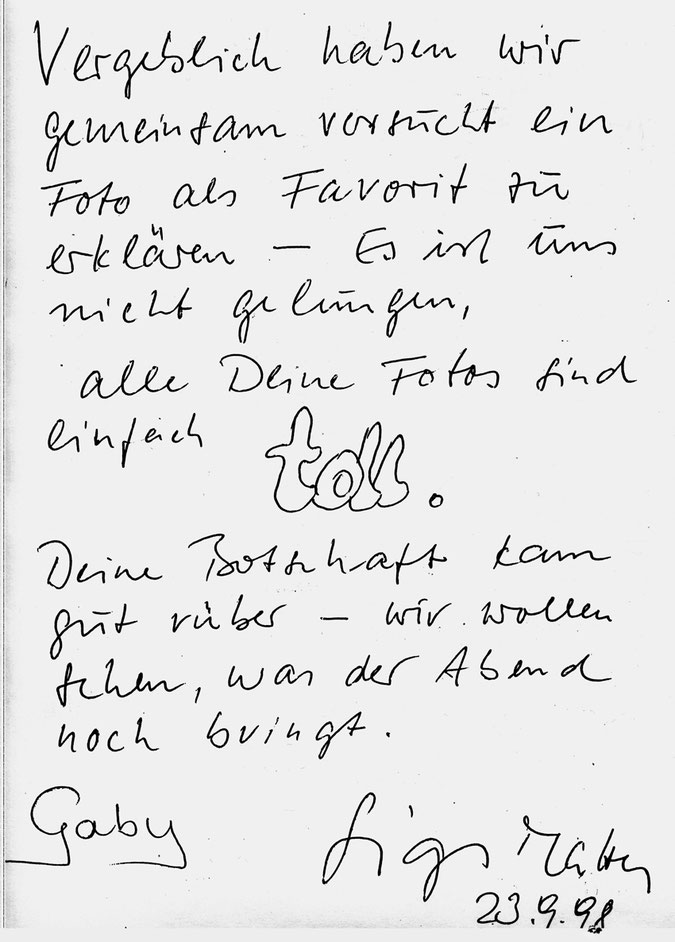 Vergeblich haben wir
gemeinsam versucht ein
Foto als Favorit zu
erklären – Es ist uns
nicht gelungen,
alle Deine Fotos sind
einfach toll.
Deine Botschaft kam
gut rüber – wir wollen
sehen, was der Abend
noch bringt.
Gaby
23.9.98